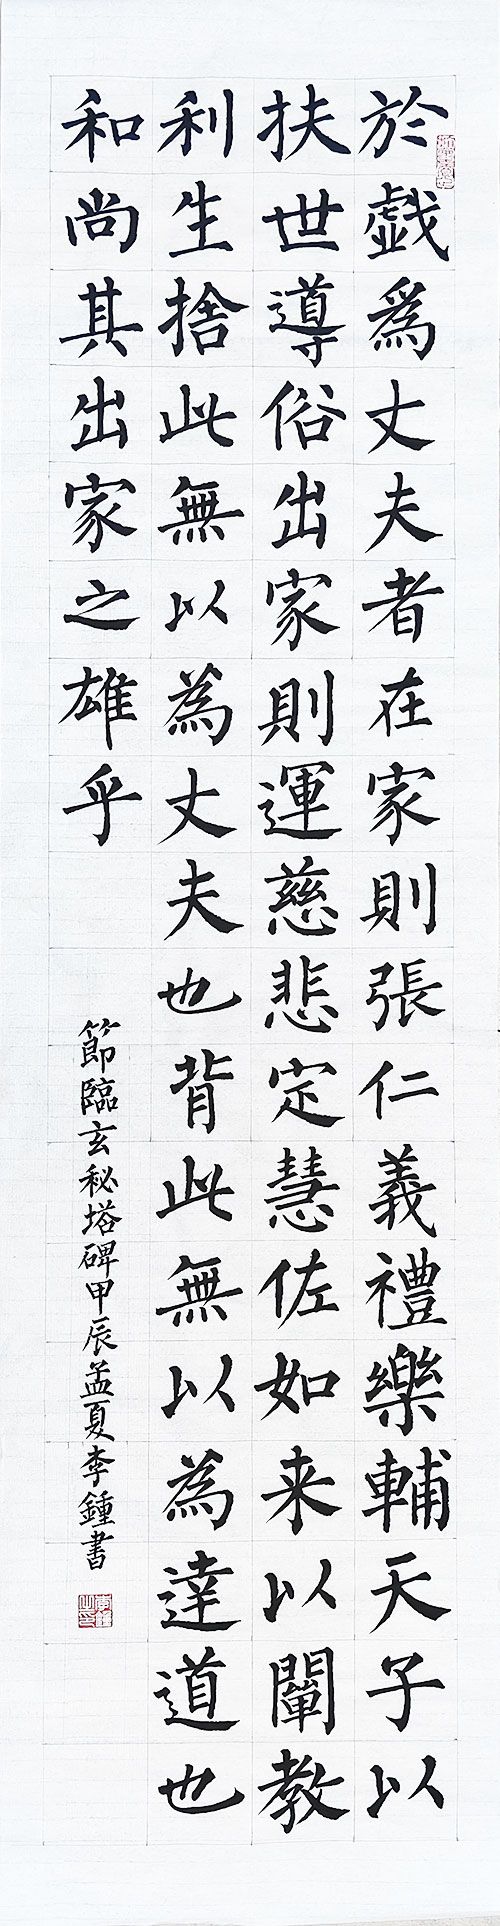 於戯爲丈夫者在家則張仁義禮樂輔天子以
扶世導俗出家則運慈悲定慧佐如来以闡教
利生捨此無以為丈夫也背此無以為達道也
和尚其出家之雄乎
節臨玄秘塔碑甲辰孟夏李鍾書